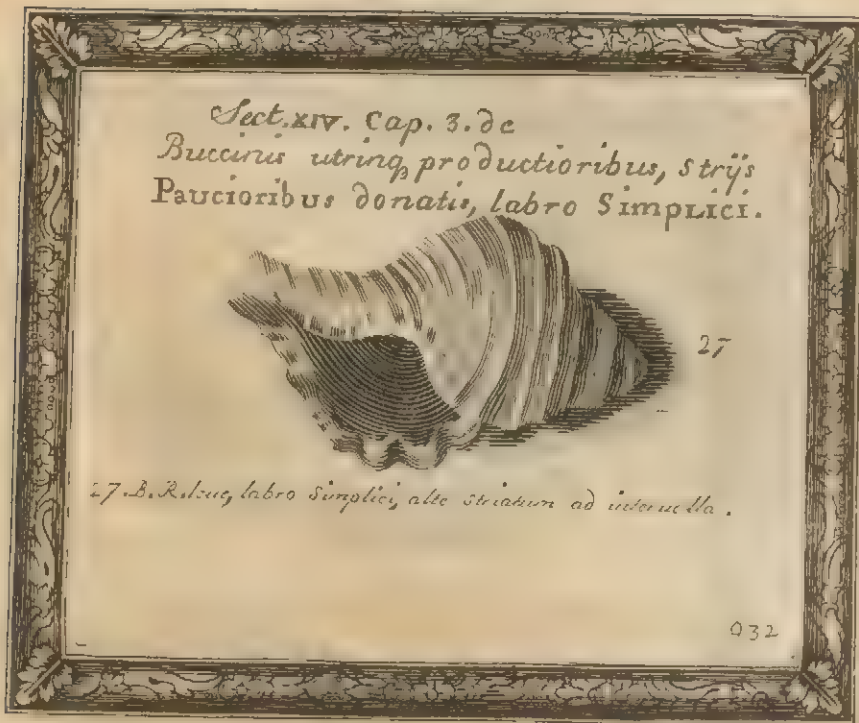 Sect. XIV. Cap. 3. de
Buccinis utrinq; productioribus, strijs
Paucioribus donatis, labro Simplici.
27
27. B. R. leve, labro Simplici, alte striatum ad intervalla.
032